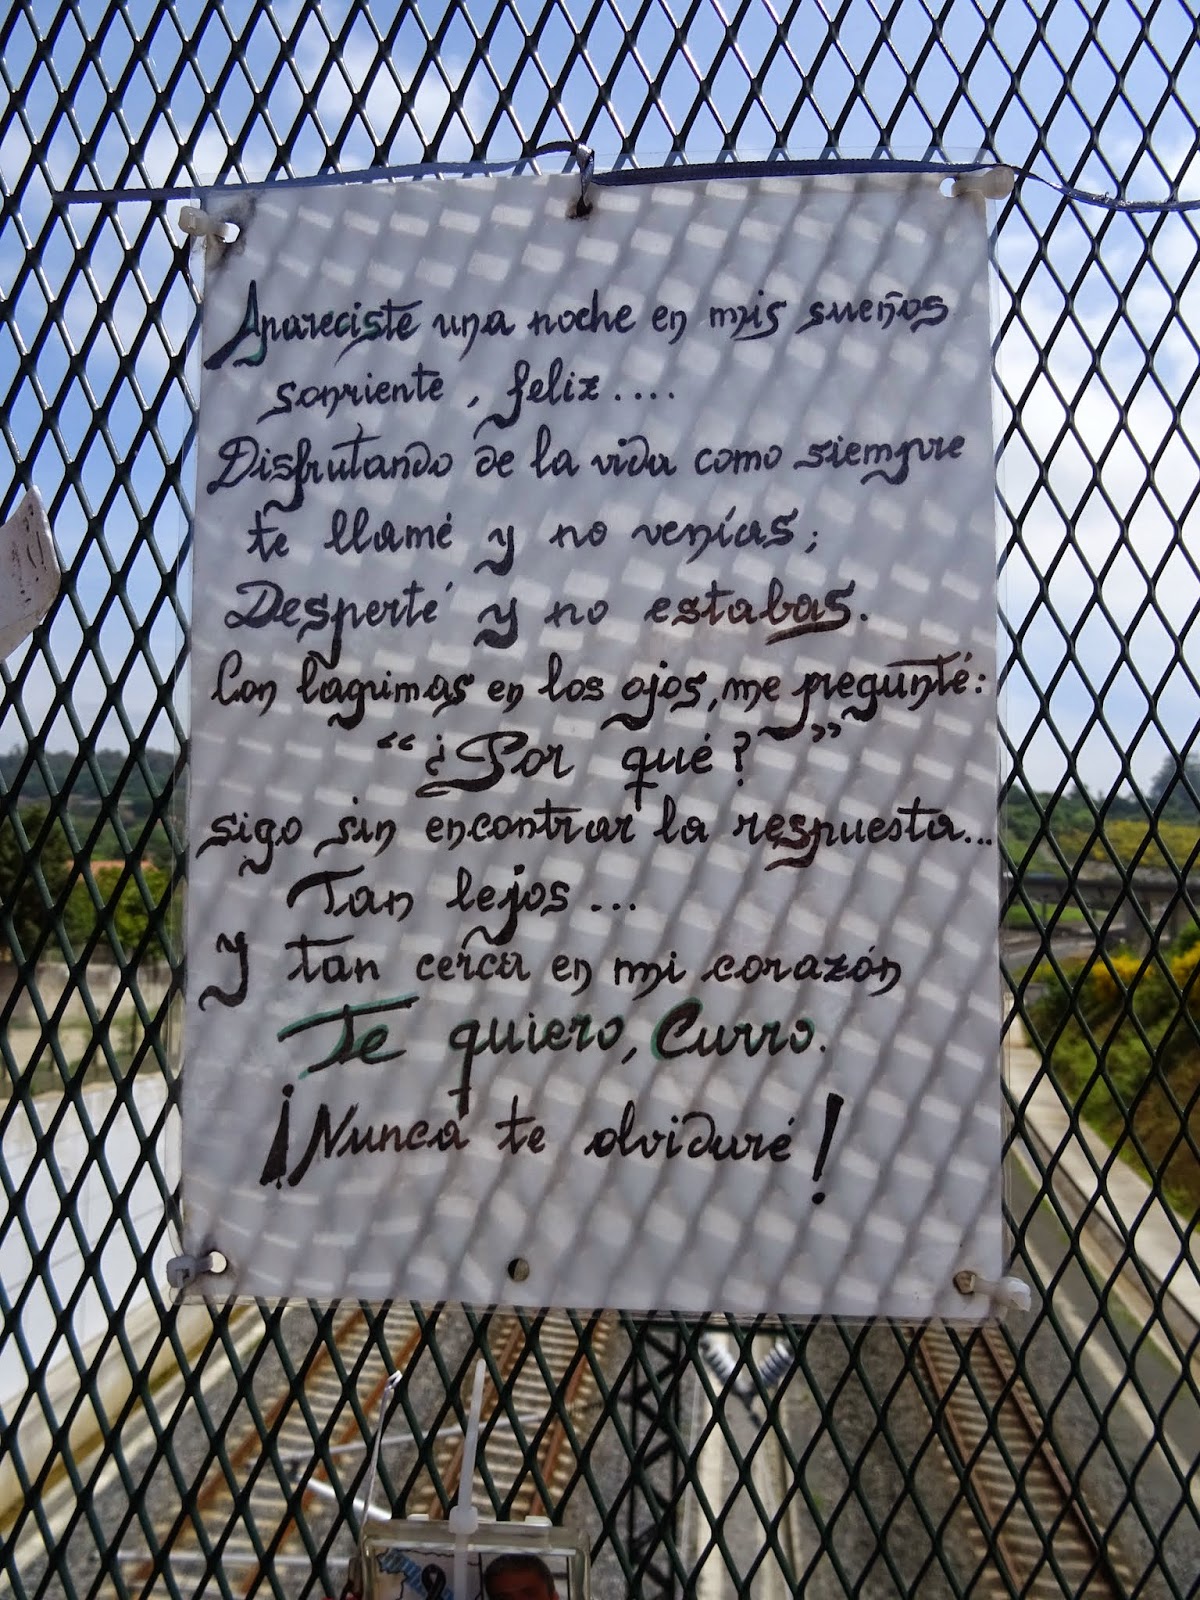 Apareciste una noche en mis sueños
sonriente, feliz....
Disfrutando de la vida como siempre
te llamé y no venías;
Desperté y no estabas.
Con lagrimas en los ojos, me pregunté:
"¿Por qué?"
sigo sin encontrar la respuesta...
Tan lejos...
Y tan cerca en mi corazón
Te quiero, Curro.
¡Nunca te olvidaré!